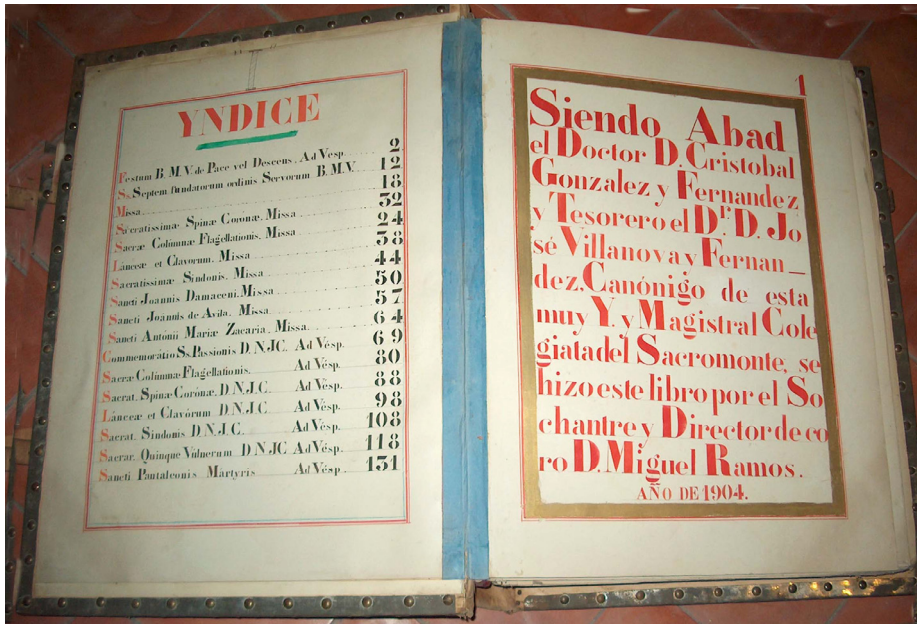 YNDICE
Festum B.M.V. de Pace vel Descens. Ad Vesp. 2
Ss. Septem fundatorum ordinis Servorum B.M.V. 12
Missa 18
Sacratissimæ Spinæ Coronæ. Missa 32
Sacræ Columnæ Flagellationis. Missa 24
Lánceæ et Clavorum. Missa 38
Sacratissimæ Sindonis. Missa 44
Sancti Joannis Damaceni. Missa 50
Sancti Joannis de Avila. Missa 57
Sancti Antonii Mariæ Zacaria. Missa. 64
Commemoratio Ss. Passionis D.N.J.C. Ad Vésp. 69
Sacræ Columnæ Flagellationis. Ad Vésp. 80
Sacrat. Spinæ Coronæ. D.N.J.C. Ad Vésp. 88
Lánceæ et Clavórum D.N.J.C. Ad Vésp. 98
Sacrat. Sindonis D.N.J.C. Ad Vésp. 108
Sacrar. Quinque Vulnerum D.N.J.C Ad Vésp. 118
Sancti Pantaleonis Martyris Ad Vésp. 131
1
Siendo Abad
el Doctor D. Cristobal
Gonzalez y Fernandez
y Tesorero el Dr. D. Jo
sé Villanova y Fernan_
dez, Canónigo de esta
muy Y. y Magistral Cole
giata del Sacromonte, se
hizo este libro por el So
chantre y Director de co
ro D. Miguel Ramos.
AÑO DE 1904.